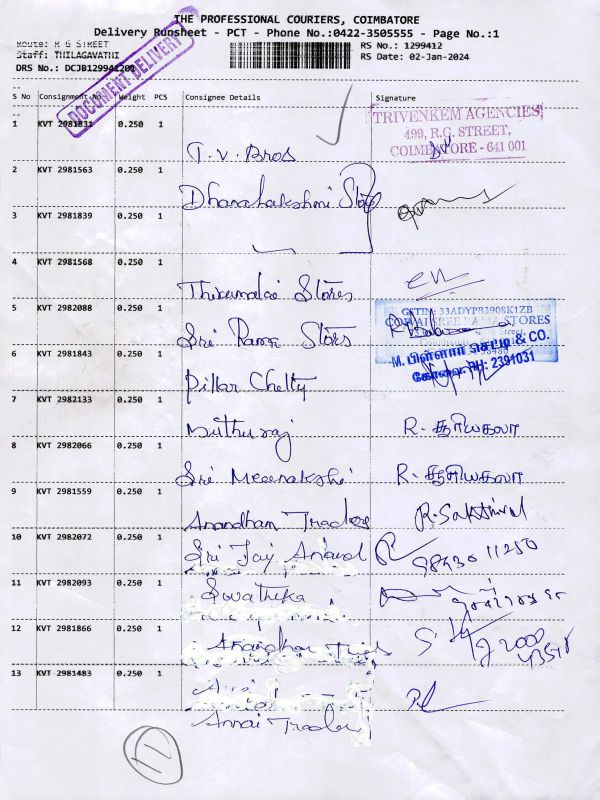 THE PROFESSIONAL COURIERS, COIMBATORE
Delivery Runsheet - PCT - Phone No.:0422-3505555 - Page No.:1
Route: R G STREET
RS No.: 1299412
Staff: THILAGAVATHI
RS Date: 02-Jan-2024
DRS No.: DCJB129941201
DOCUMENT DELIVERY
S No Consignment No Weight PCS Consignee Details Signature
TRIVENKEM AGENCIES
499, R.G. STREET,
COIMBATORE - 641 001
1 KVT 2981831 0.250 1 T. V. Bros
2 KVT 2981563 0.250 1 Dhanalakshmi Stores
3 KVT 2981839 0.250 1
4 KVT 2981568 0.250 1 Thirumalai Stores
5 KVT 2982088 0.250 1 Sri Rama Stores
GSTIN: 33ADYPB3908K1ZB
STORES
6 KVT 2981843 0.250 1 Pillar Chetty
M. பிள்ளார் செட்டி & CO.
கோவை. PH: 2391031
7 KVT 2982133 0.250 1 Muthuraj R. சூரியகலா
8 KVT 2982066 0.250 1 Sri Meenakshi R. சூரியகலா
9 KVT 2981559 0.250 1 Anandham Traders R. Sakthivel
10 KVT 2982072 0.250 1 Sri Jay Anand 98430 11250
11 KVT 2982093 0.250 1 Swathika
12 KVT 2981866 0.250 1 Anandham
13 KVT 2981483 0.250 1
Annai Traders